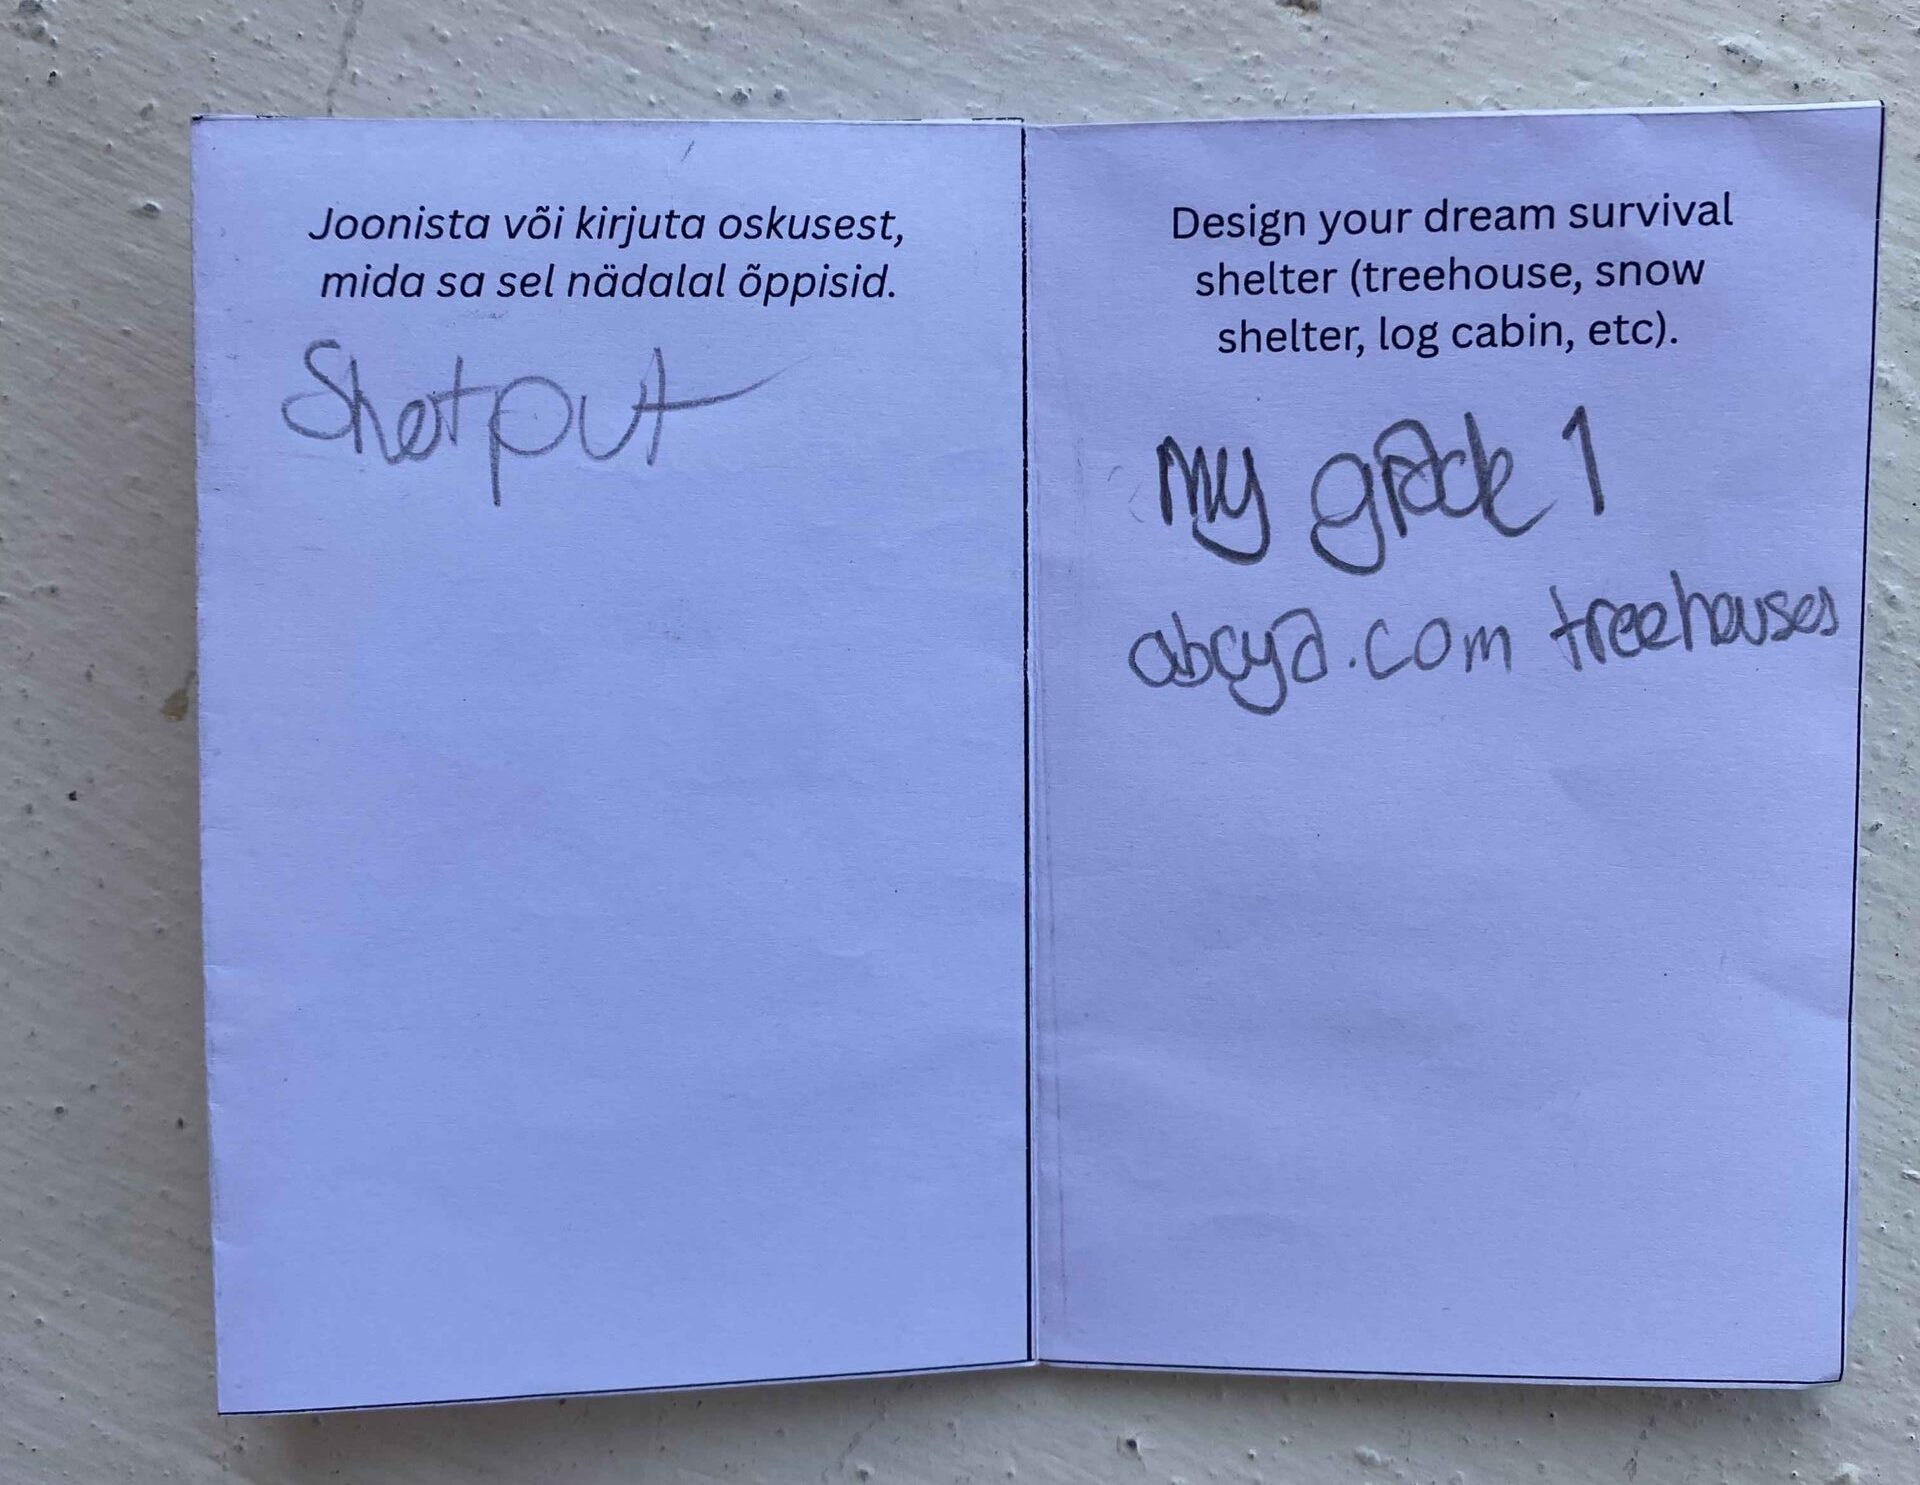 Joonista või kirjuta oskusest,
mida sa sel nädalal õppisid.
Shotput
Design your dream survival
shelter (treehouse, snow
shelter, log cabin, etc).
my grade 1
abcya.com treehouses